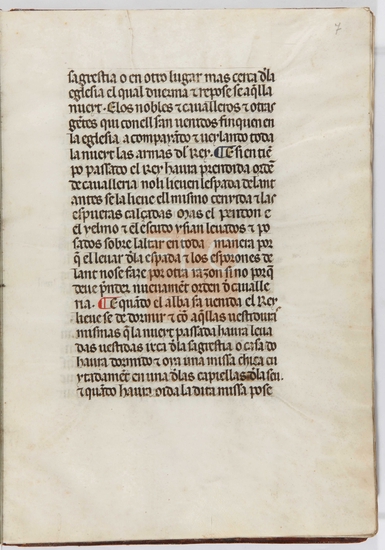 7
sagrestia o en otro lugar mas cerca dla
eglesia el qual duerma ⁊ repose se aqlla
nueyt. E los nobles ⁊ cavalleros ⁊ otras
gentes qui con ell san venidos finquen en
la eglesia a compaynado ⁊ uerlanto toda
la nueyt las armas dl Rey. ¶ E si en tie
po passado el Rey haura prendida orde
de cavalleria no li lieuen lespada delant
antes se la lieue ell mismo cenyida ⁊ las
espueras calçadas mas el penton e
el yelmo ⁊ el escudo y sian leuados ⁊ po
sados sobre laltar en toda manera por
q el leuar dla espada ⁊ los esporones de
lant nose faze por otra razon si no porq
deue prender nueuament orden d cavalle
ria. ¶ E quando el alba sia uenida el Rey
lieue se de dormir ⁊ co aqllas uestiduras
mismas q la nueyt passada haura leua
das uestidas ieca dla sagrestia o casa do
haura dormido ⁊ oya una missa chica en
una dlas capiellas dla seu.
⁊ quado haura oida la dita missa pose